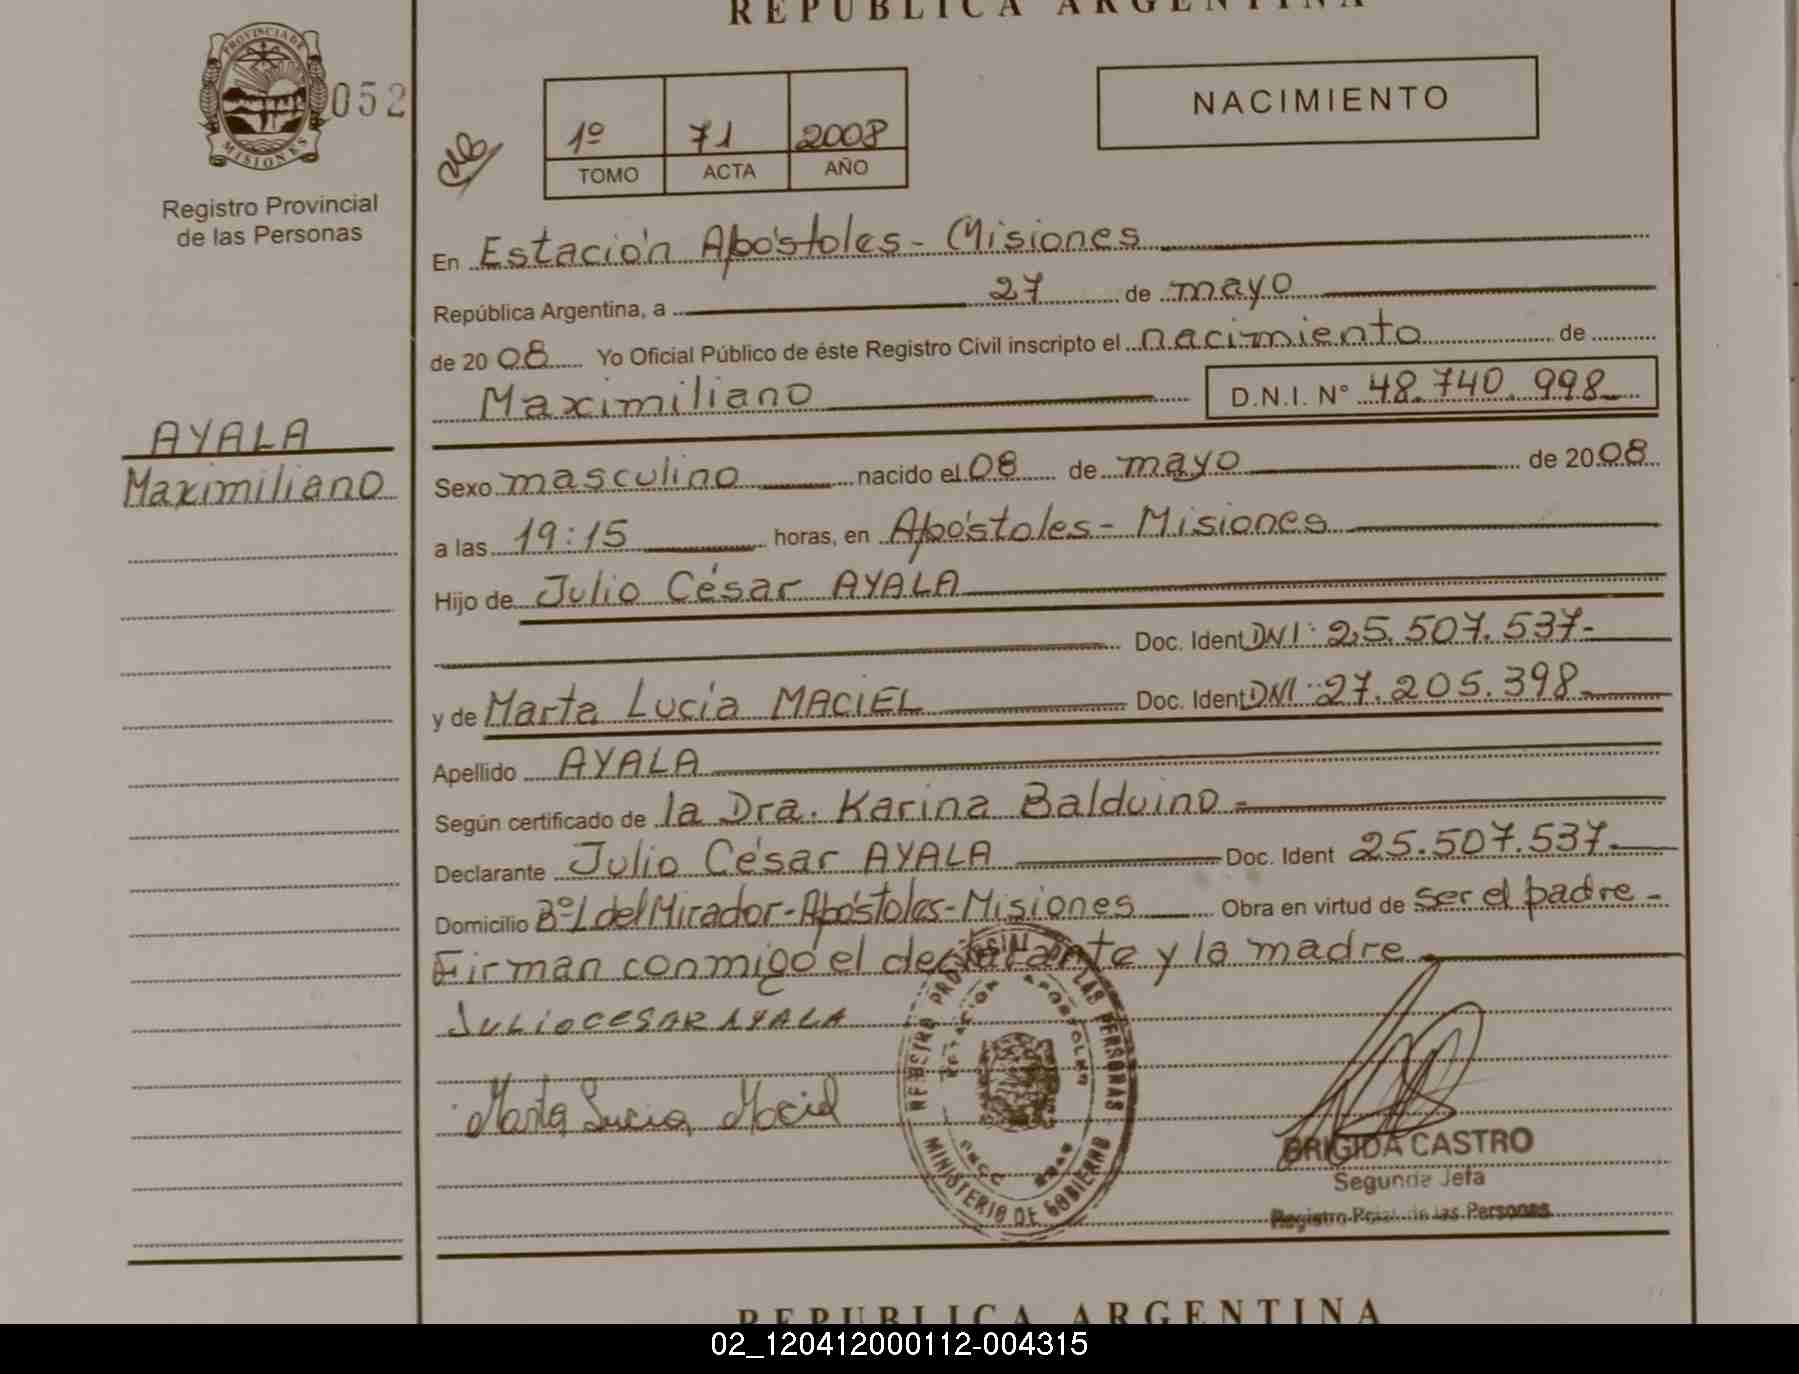 REPUBLICA ARGENTINA
PROVINCIA DE
MISIONES
052
Registro Provincial
de las Personas
1º 71 2008
TOMO ACTA AÑO
NACIMIENTO
En Estación Apóstoles - Misiones
República Argentina, a 27 de mayo
de 2008 Yo Oficial Público de éste Registro Civil inscripto el nacimiento de
Maximiliano D.N.I. N° 48.740.998
AYALA
Maximiliano
Sexo masculino nacido el 08 de mayo de 2008
a las 19:15 horas, en Apóstoles - Misiones
Hijo de Julio César AYALA
Doc. Ident DNI: 25.507.537-
y de Marta Lucía MACIEL Doc. Ident DNI: 27.205.398-
Apellido AYALA
Según certificado de la Dra. Karina Balduino -
Declarante Julio César AYALA Doc. Ident 25.507.537-
Domicilio Bº L del Mirador - Apóstoles - Misiones Obra en virtud de ser el padre -
Firman conmigo el declarante y la madre
JULIO CESAR AYALA
Marta Lucia Maciel
REGISTRO PROVINCIAL DE LAS PERSONAS
ESTACION APOSTOLES
MINISTERIO DE GOBIERNO
BRIGIDA CASTRO
Segunda Jefa
Registro Pcial. de las Personas
REPUBLICA ARGENTINA
02_120412000112-004315